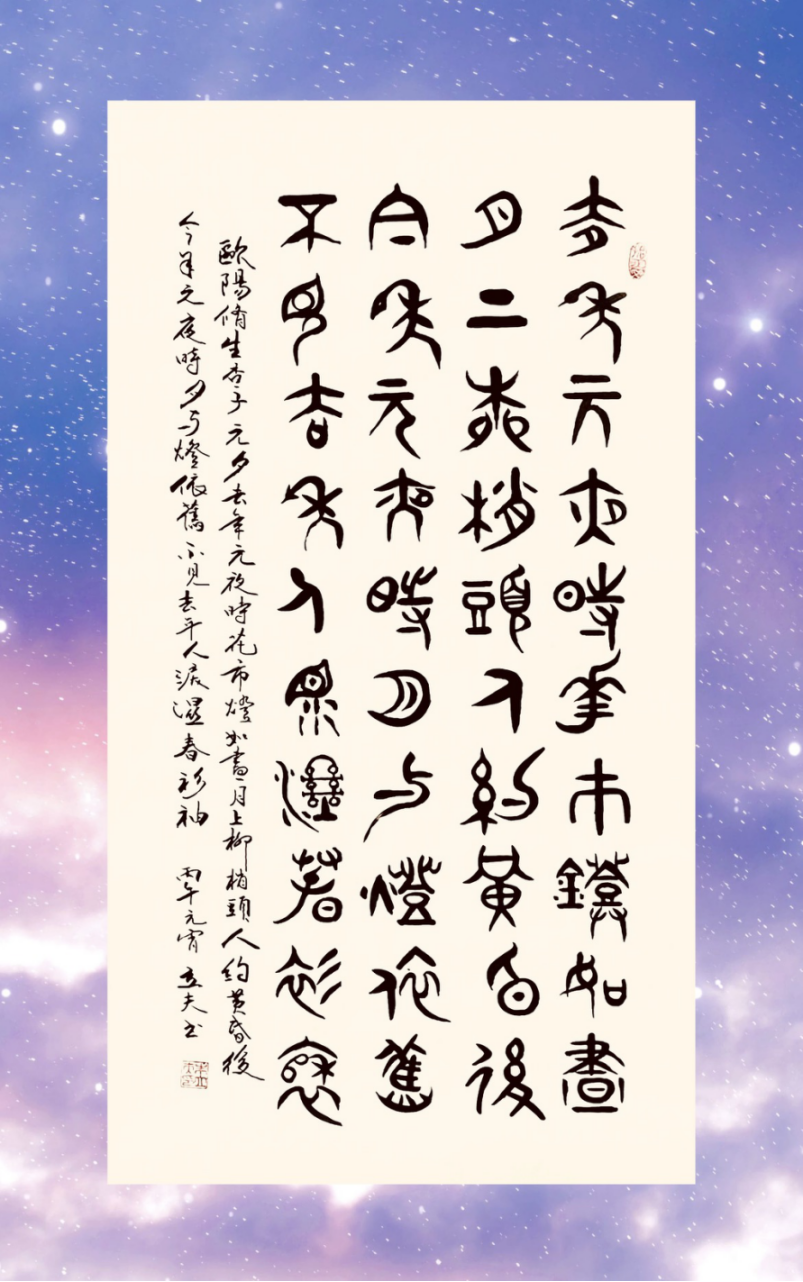 去年元夜時華市鐙如晝
月上柳梢頭人約黃昏後
今年元夜時月与燈依舊
不見去年人泪濕春衫袖
歐陽脩生查子元夕去年元夜時花市燈如晝月上柳梢頭人約黃昏後
今年元夜時月与燈依舊不見去年人淚濕春衫袖 丙午元宵立夫书